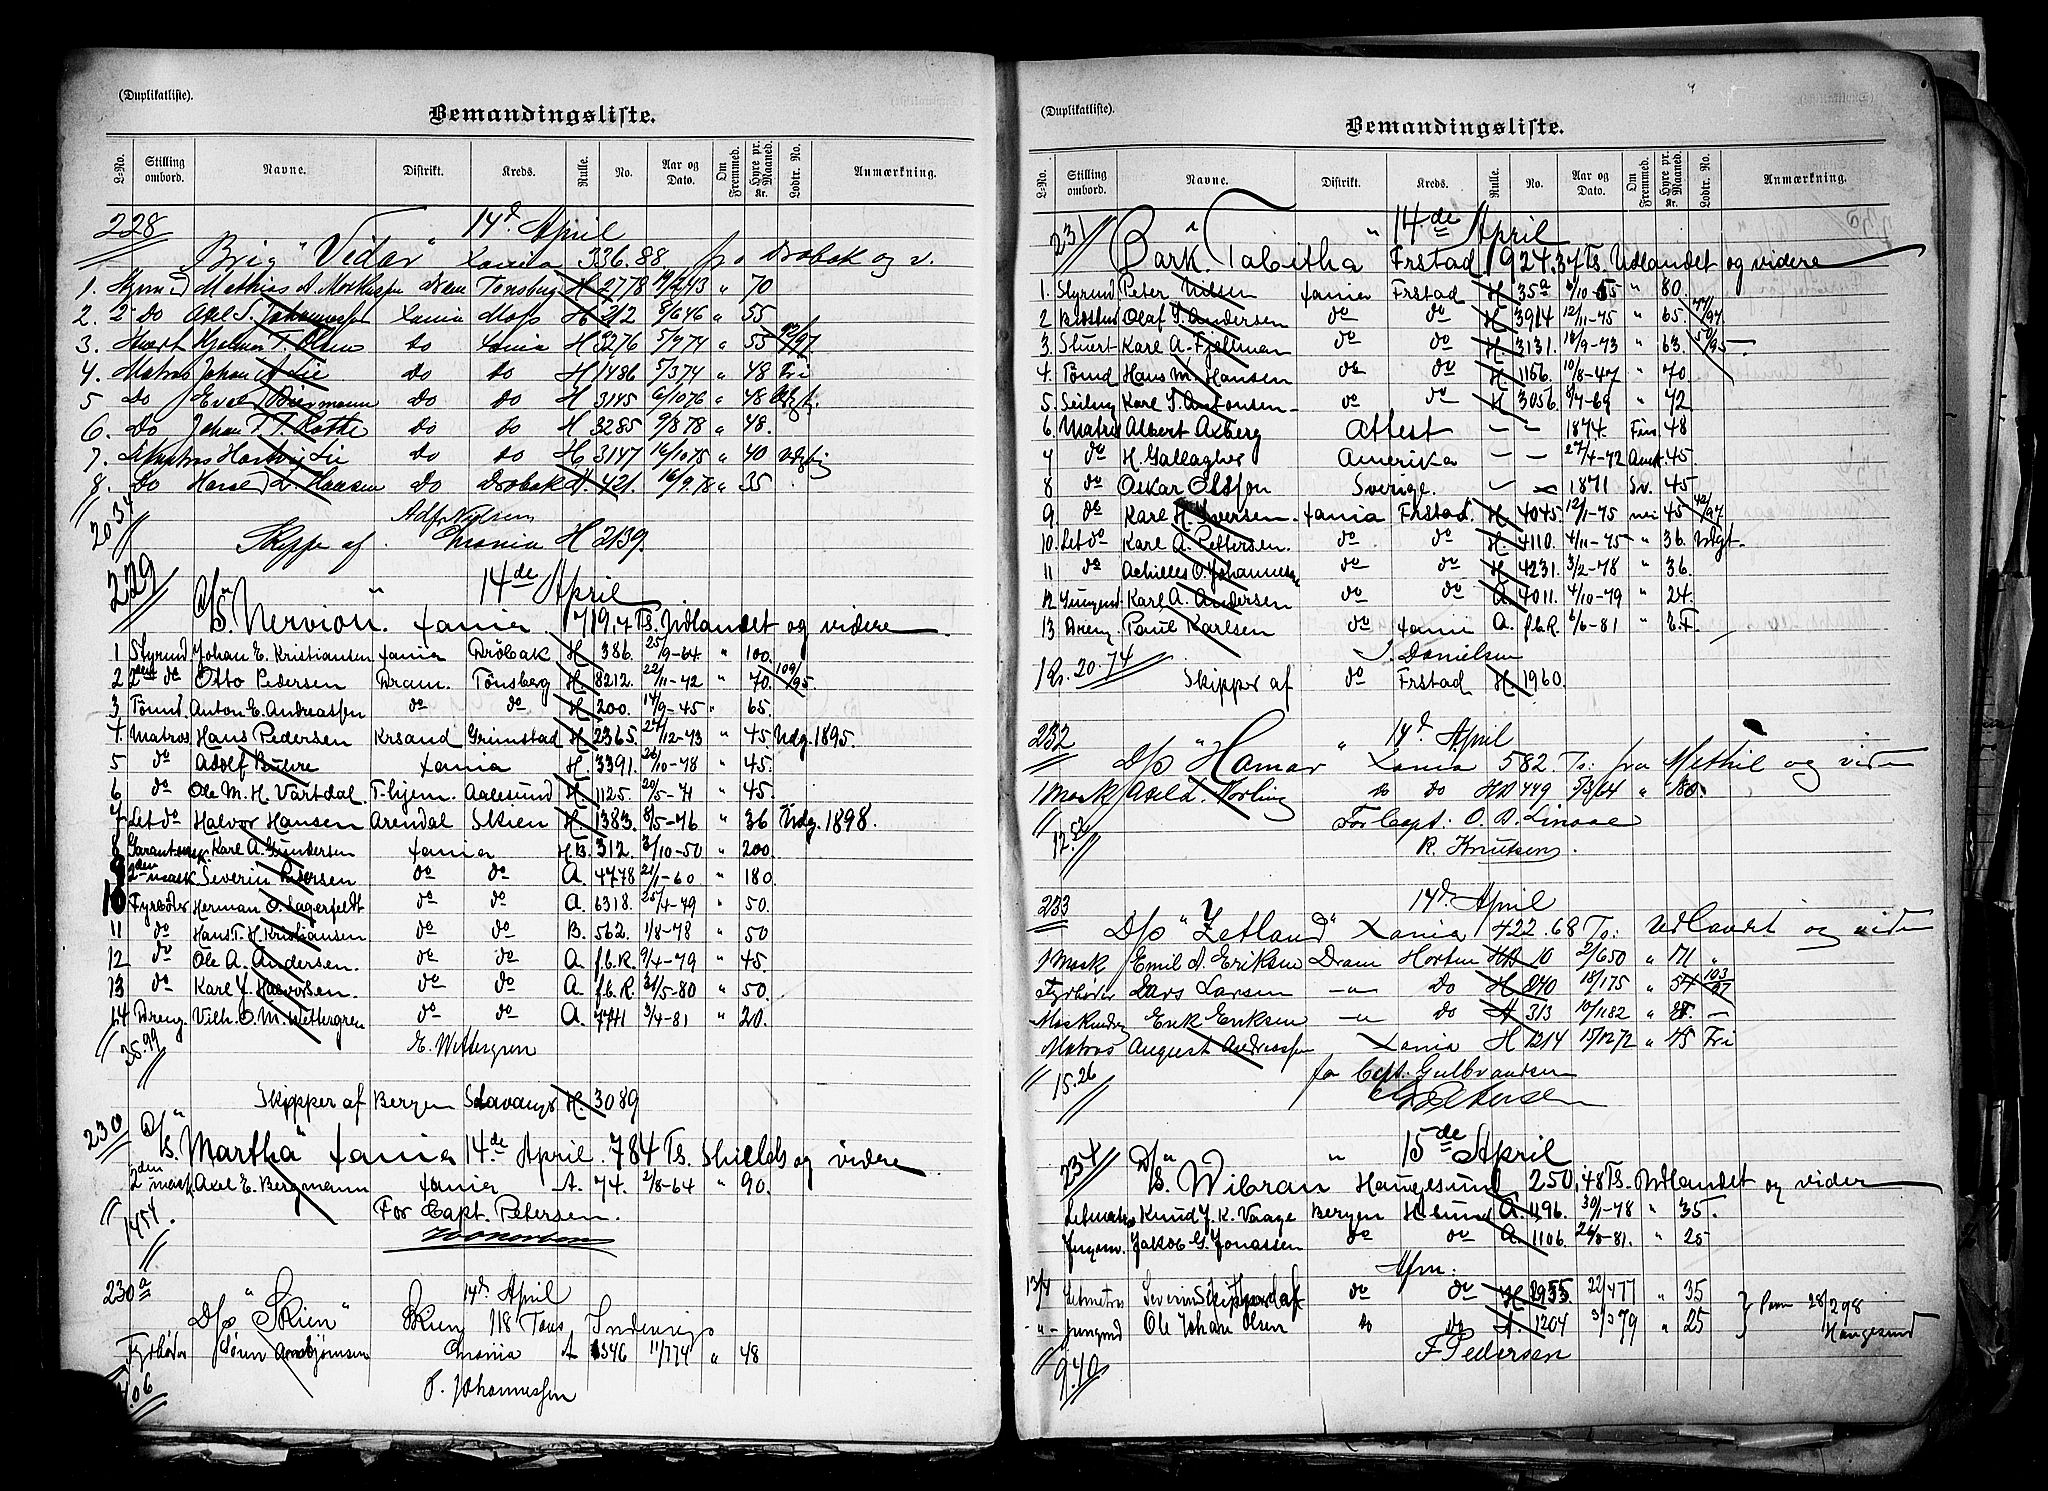 (Duplikatliste).
Bemandingsliste.
L-No. Stilling ombord. Navne. Distrikt. Kreds. Rulle. No. Aar og Dato. Om Fremmed. Hyre pr. Maaned. Kr. Lodtr. No. Anmærkning.
228 14d April
Brig "Vidar" Xania 336.88 fra Drøbak og v.
1. Mathias A. Dram Tønsberg H 2778 19/2 43 " 70
2. 2 do Axel S. Johannessen Xania Moss H 212 9/6 46 " 55
3. Hjalmar T. Olsen do Xania H 3276 5/7 74 " 55 /97.
4. Matros Johan A Lie do do H 1486 5/3 74 " 48 Fri
5 Do Evald Biermann do do H 3145 6/10 76 " 48
6. Do Johan F. T. Rothe do do H 3285 9/8 78 " 48.
7. Letmatros Hartvig Lie do do H 3147 16/10 75 " 40 Udgtig
8. Do L. Hansen Do Drøbak A. 421. 16/9. 78 " 35
20 34
Skipper af Chrania H 2139.
229 14de April
D/S. "Nervion" Xania. 719,7 Ts. Udlandet og videre
1 Styrmd Johan E. Kristiansen Xania Drøbak H 386. 25/9-64 " 100.
2 2den do Otto Pedersen Dram. Tønsberg H 8212. 22/11-42 " 70. 109/95.
3 Tømd. Anton E. Andreassen do do H 200. 14/9-45 " 65.
4 Matros Hans Pedersen Krsand Grimstad H 2365. 27/12-73 " 45. Udg. 1895.
5 do Adolf Xania H. 3391. 26/10-78 " 45.
6 do Ole M. H. Vartdal. T-hjem. Aalesund H 1125. 20/5-71 " 45.
7 Let do Halvor Hansen Arendal Skien H. 1383. 8/5-76 " 36 Udg. 1898.
8 Garantimask. Karl A. Gundersen Xania H.B. 312. 3/10-50 " 200.
9 2den mask Severin Pedersen do do A. 4778 21/1-60 " 180.
10 Fyrbøder Herman O. Lagerfeldt do do A. 6318. 25/4-79 " 50.
11 do Hans T. H. Kristiansen do do B. 562. 1/8-78 " 50
12 do Ole A. Andersen. do do A. f.b.R. 9/4-79 " 45.
13 do Karl J. Halvorsen. do do A. f.b.R. 31/5-80 " 50.
14 Dreng. Vilh. O. M. Wettergren do do A. 7741 3/4-81 " 20.
35.99 E. Wettergren
Skipper af Bergen Stavanger H. 3089
230 D/S. "Martha" Xania 14de April. 784 Ts. Shields og videre
2den mask. Axel E. Bergmann Xania A. 74. 2/8-64 " 90.
1454. For Capt. Petersen.
230a 14d. April
D/S "Skien" Skien 118 Tons
Fyrbøder Søren Arnebjørnsen Chrania A 1346 11/7 74 " 48
.06 T. Johannessen
(Duplikatliste).
Bemandingsliste.
L-No. Stilling ombord. Navne. Distrikt. Kreds. Rulle. No. Aar og Dato. Om Fremmed. Hyre pr. Maaned. Kr. Lodtr. No. Anmærkning.
231 " " 14de April
Bark. Tabitha Frstad 1924.37 Ts. Udlandet og videre
1. Styrmd Peter Nilsen Xania Frstad H. 35a 6/10-55 " 80.
2 Olaf S. Andersen do do H. 3914 12/11-75 " 65. 77/97.
3. Stuert Karl A. Fjellman do do H. 3131. 16/9-73 " 63. 59/95.
4. Tømd Hans M. Hansen do do H. 1156. 10/8-47 " 70
5. Seilmg Karl S. Antonsen do do H 3056 9/7-69 " 42
6. Matros Albert Axberg Attest — — 1874. Fin. 48
7 do H. Gallagher Amerika — — 27/4-72 Amk. 45.
8 do Oskar Olsson Sverige. — — 1871 Sv. 45
9. do Karl H. Iversen. Xania Frstad. H 4045. 12/1-75 nei 45 42/97
10. Let do Karl A. Pettersen. do do H. 4110. 4/11-75 " 36. Udgt.
11 do Achilles O. Johannes do do H 4231. 3/2-78 " 36.
12 Jungmd Karl A. Andersen do do A. 4011. 4/10-79 " 24.
13 Dreng. Paul Karlsen do Xania A. f.b.R. 6/6-81 "
J. Danielsen
Kr. 20.74 Skipper af do Frstad H. 1960.
232 14d April
D/S "Hamar" Xania 582 Ts: fra Methil og videre
1 Mask Axel L. Norling do do HB 449 5/3 64 " 180.
12.52 For Capt: O. A. Linaae
R. Knutsen.
233 14d. April
D/S "Zetland" Xania 422.68 Ts: Udlandet og videre
1 Mask Emil A. Eriksen Dram Horten HB 10 2/6 50 " 71 "
Fyrbøder Lars Larsen —"— Do H 270 18/1 75 " 54 103/97
Erik Eriksen —"— do A 313 10/11 82 " —
Matros August Andreassen Xania H 1214 15/12 72 " 45 Fri
15.26 for Cpt: Gulbrandsen
234 " 15de April
D/S. Wibran Haugesund 250,48 Ts. Udlandet og videre
Letmatros Knud J. K. Vaage Bergen Hsund A. 1196. 30/1-78 " 35.
Jakob G. Jonassen do do A. 1106. 24/8-81. " 25
Afm:
13/4 Letmatros Severin do do H 2955 22/4 77 " 35
-"- Jungmd Ole Johan Olsen do do A. 1204 3/3 79 " 25 } Paam 28/2 98 Haugesund
9.40. F Pedersen